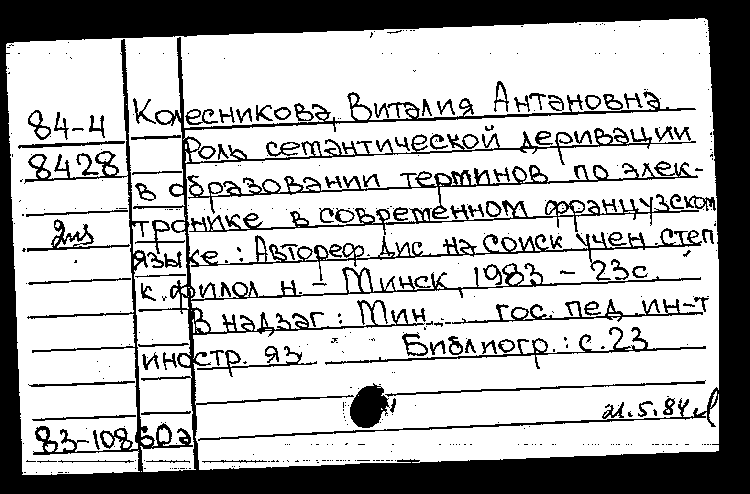 Колесникова, Виталия Антановна.
84-4
Роль семантической деривации
8428
в образовании терминов по элек-
2пз
тронике в современном французском
языке.: Автореф. дис. на соиск учен. степ.
к. филол. н. - Минск, 1983 - 23с.
В надзаг: Мин. гос. пед. ин-т
иностр. яз Библиогр.: с. 23
21.5.84
83-10860а